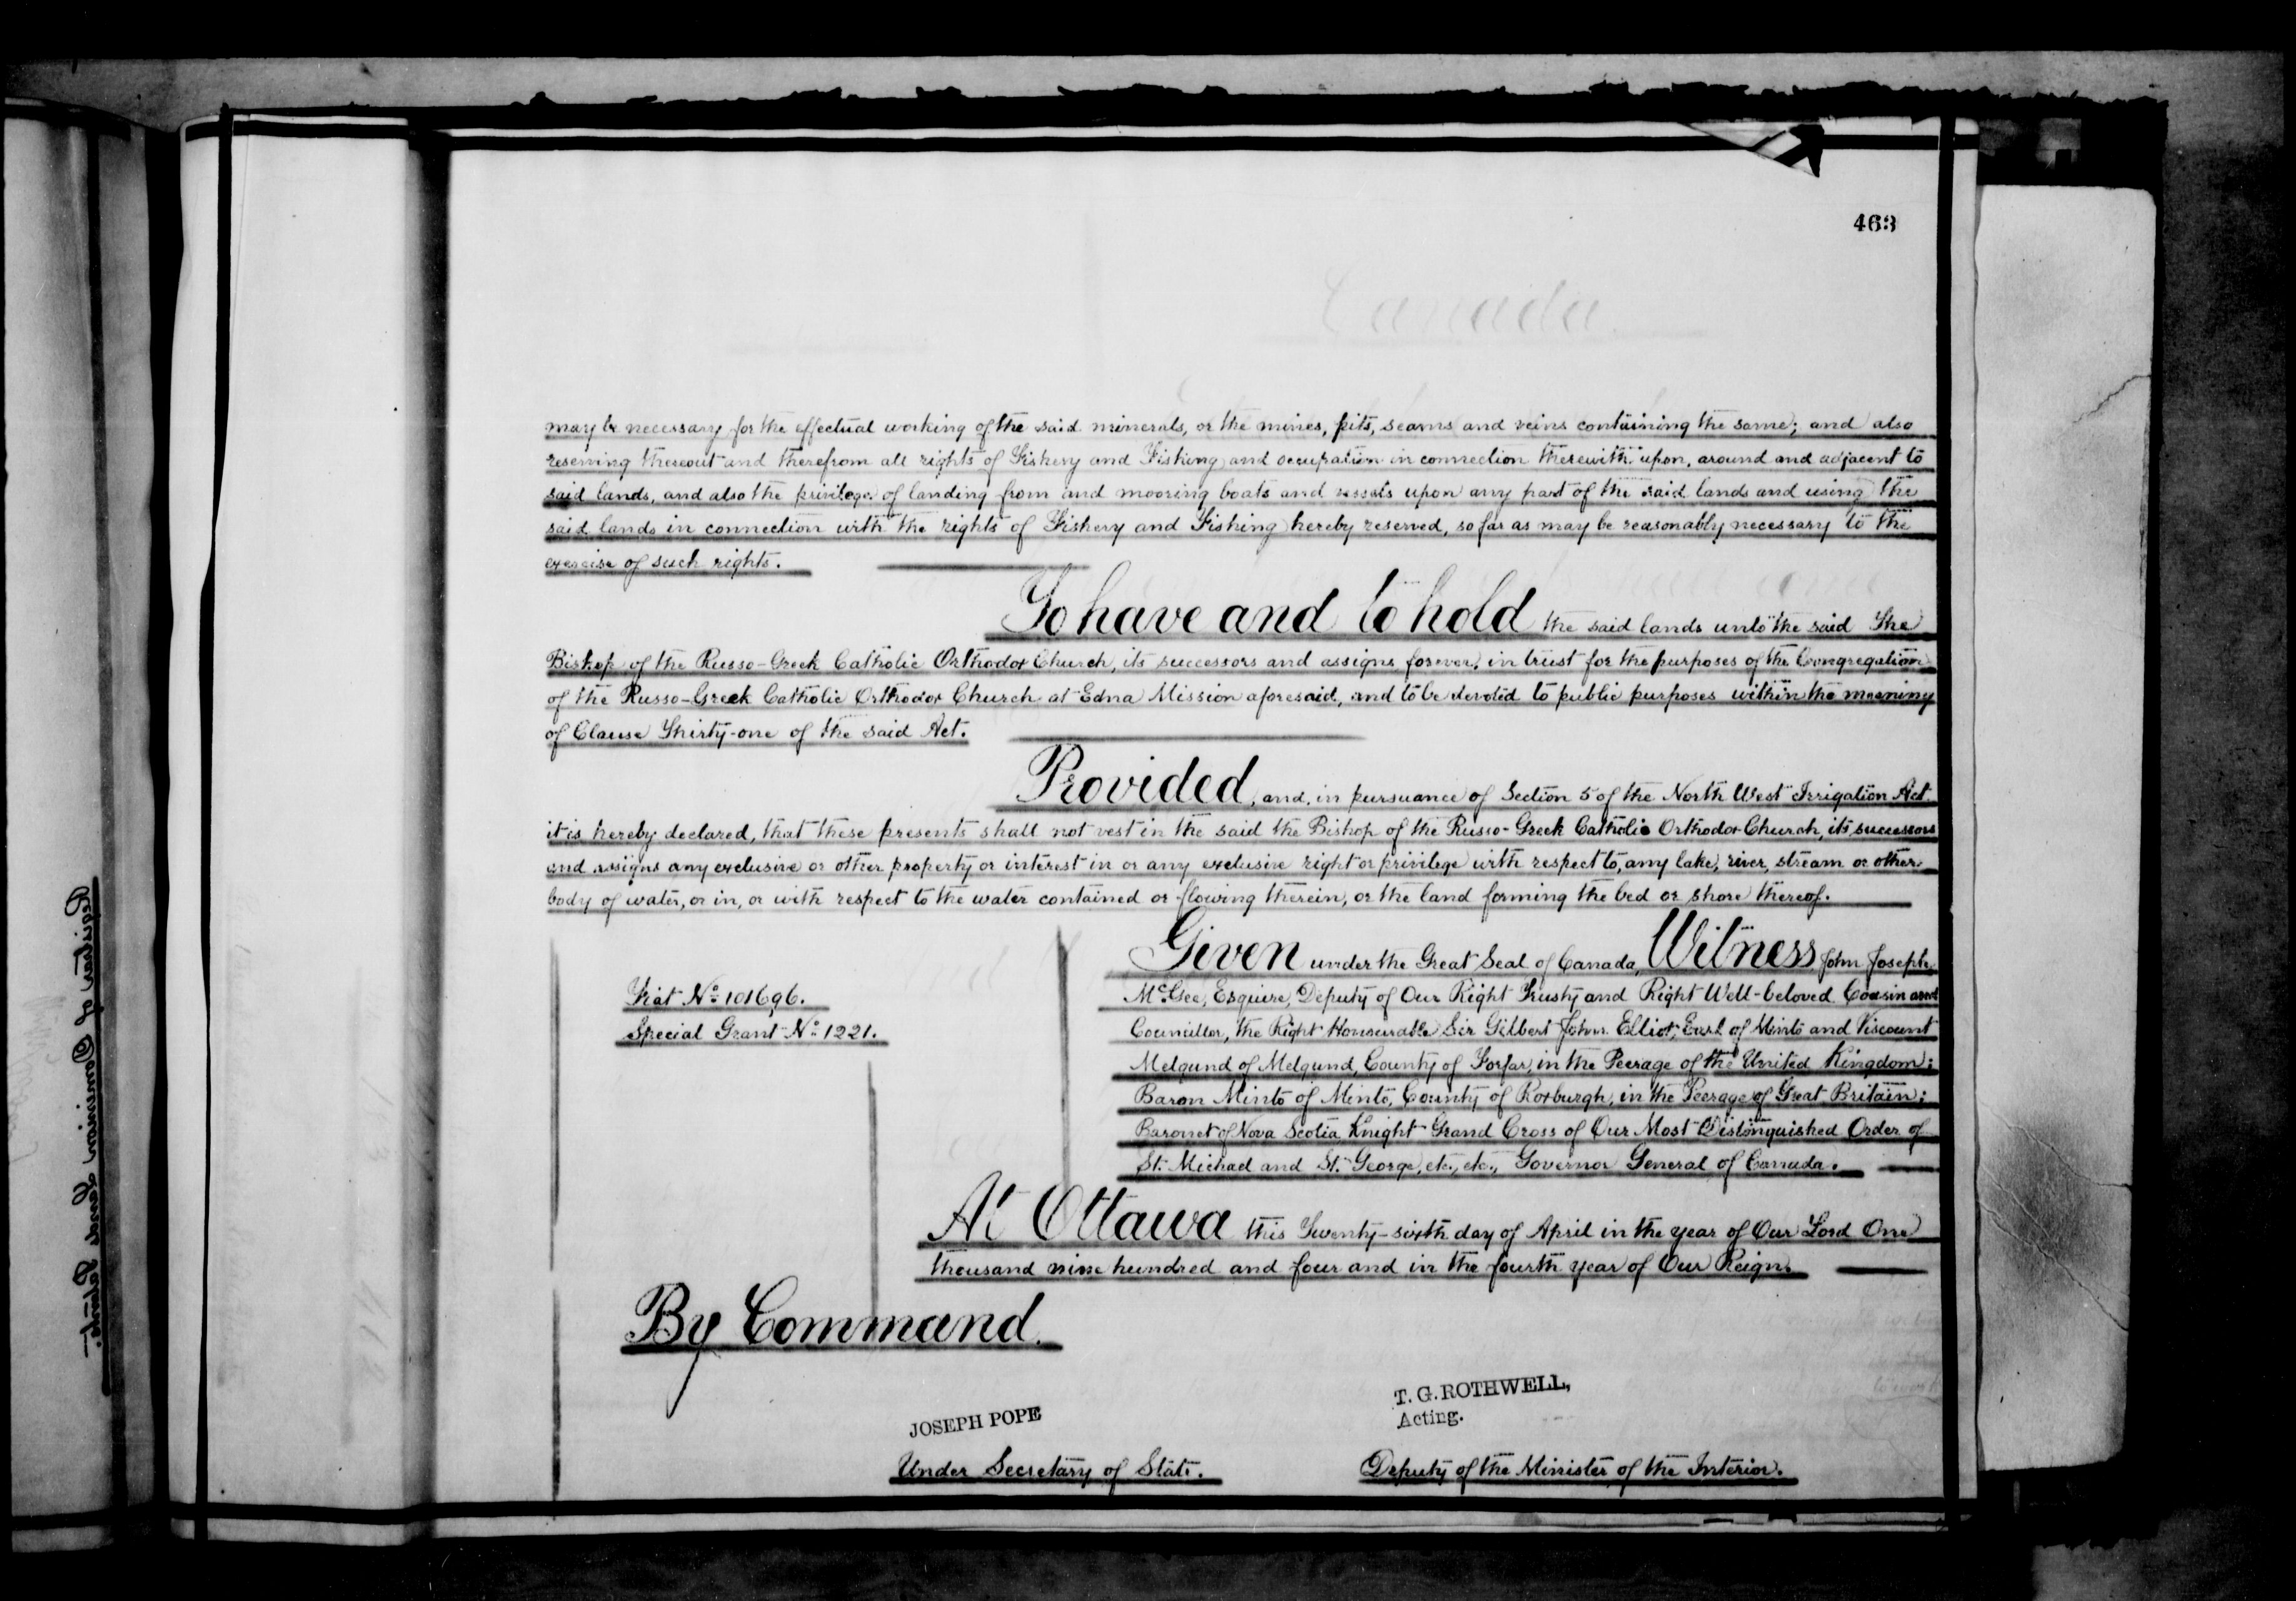 463
Canada
may be necessary for the effectual working of the said minerals, or the mines, pits, seams and veins containing the same; and also
reserving thereout and therefrom all rights of Fishery and Fishing and occupation in connection therewith upon, around and adjacent to
said lands, and also the privilege of landing from and mooring boats and vessels upon any part of the said lands and using the
said lands in connection with the rights of Fishery and Fishing hereby reserved, so far as may be reasonably necessary to the
exercise of such rights.
To have and to hold the said lands unto the said The
Bishop of the Russo-Greek Catholic Orthodox Church, its successors and assigns forever, in trust for the purposes of the Congregation
of the Russo-Greek Catholic Orthodox Church at Edna Mission aforesaid, and to be devoted to public purposes within the meaning
of Clause Thirty-one of the said Act.
Provided, and, in pursuance of Section 5 of the North West Irrigation Act
it is hereby declared, that these presents shall not vest in the said the Bishop of the Russo-Greek Catholic Orthodox Church, its successors
and assigns any exclusive or other property or interest in or any exclusive right or privilege with respect to, any lake, river, stream or other
body of water, or in, or with respect to the water contained or flowing therein, or the land forming the bed or shore thereof.
Given under the Great Seal of Canada, Witness John Joseph
McGee, Esquire, Deputy of Our Right Trusty and Right Well-beloved Cousin and
Councillor, the Right Honourable Sir Gilbert John Elliot, Earl of Minto and Viscount
Melgund of Melgund, County of Forfar, in the Peerage of the United Kingdom;
Baron Minto of Minto, County of Roxburgh, in the Peerage of Great Britain;
Baronet of Nova Scotia, Knight Grand Cross of Our Most Distinguished Order of
St. Michael and St. George, etc., etc., Governor General of Canada.
Fiat No. 101696.
Special Grant No. 1221.
At Ottawa this Twenty-sixth day of April in the year of Our Lord One
thousand nine hundred and four and in the fourth year of Our Reign.
By Command.
JOSEPH POPE
Under Secretary of State.
T. G. ROTHWELL,
Acting.
Deputy of the Minister of the Interior.
Registrar of Dominion Lands Patents.